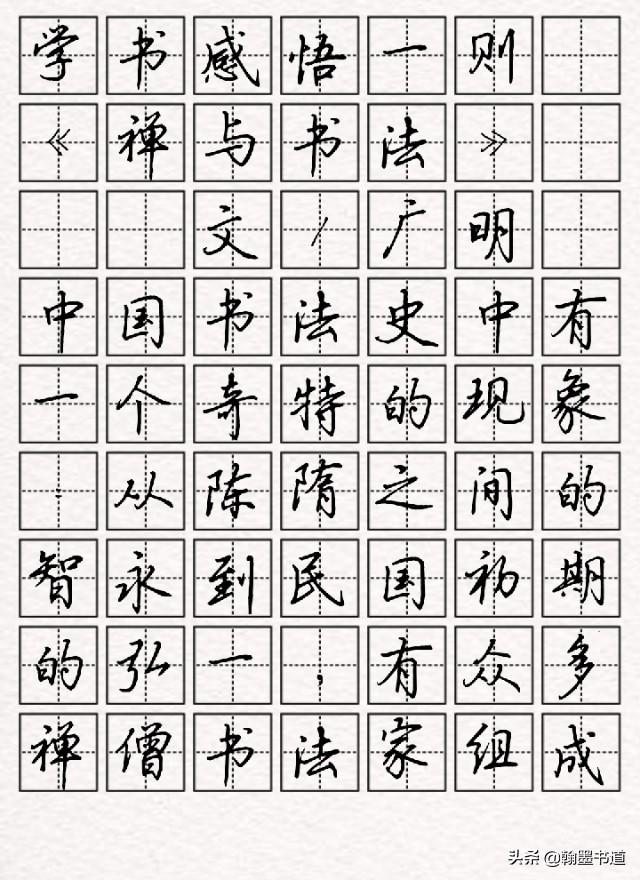 学书感悟一则
《禅与书法》
文/广明
中国书法史中有
一个奇特的现象
：从陈隋之间的
智永到民国初期
的弘一，有众多
禅僧书法家组成
头条 @翰墨书道